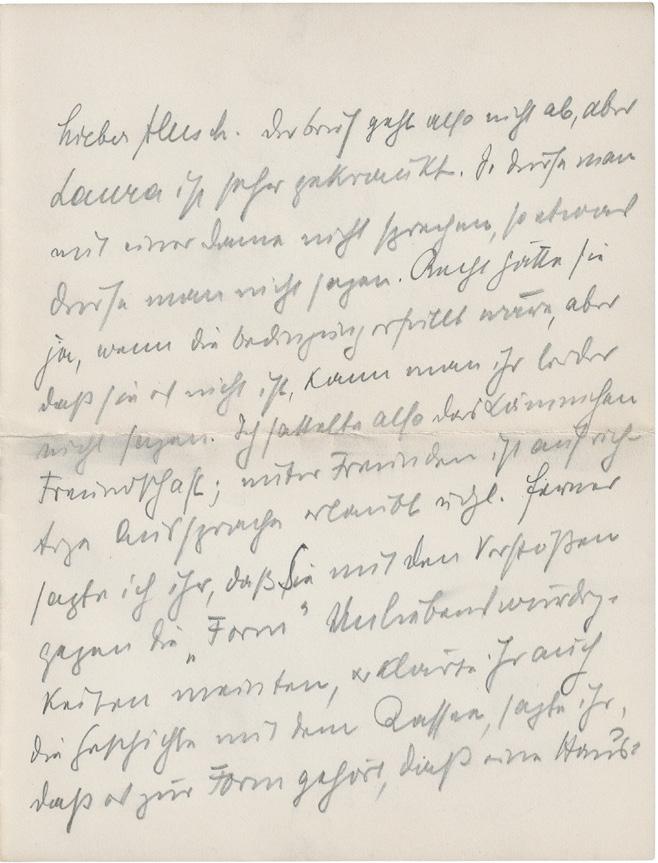 Lieber Husch. Der brief geht also nicht ab, aber
Laura ist sehr gekränkt. So dürfe man
mit einer Dame nicht sprechen, so etwas
dürfe man nicht sagen. Recht hätte sie
ja, wenn die bedingung erfüllt wäre, aber
daß sie es nicht ist, kann man ihr leider
nicht sagen. Ich sattelte also das Lämmchen
Freundschaft; unter Freunden ist aufrich-
tige Aussprache erlaubt usgl. ferner
sagte ich ihr, daß Sie mit den Verstößen
gegen die „Form“ Unliebenswürdig-
keiten meinten, erklärte ihr auch
die Geschichte mit dem Rassen, sagte ihr,
daß es zur Form gehört, daß eine Haus-